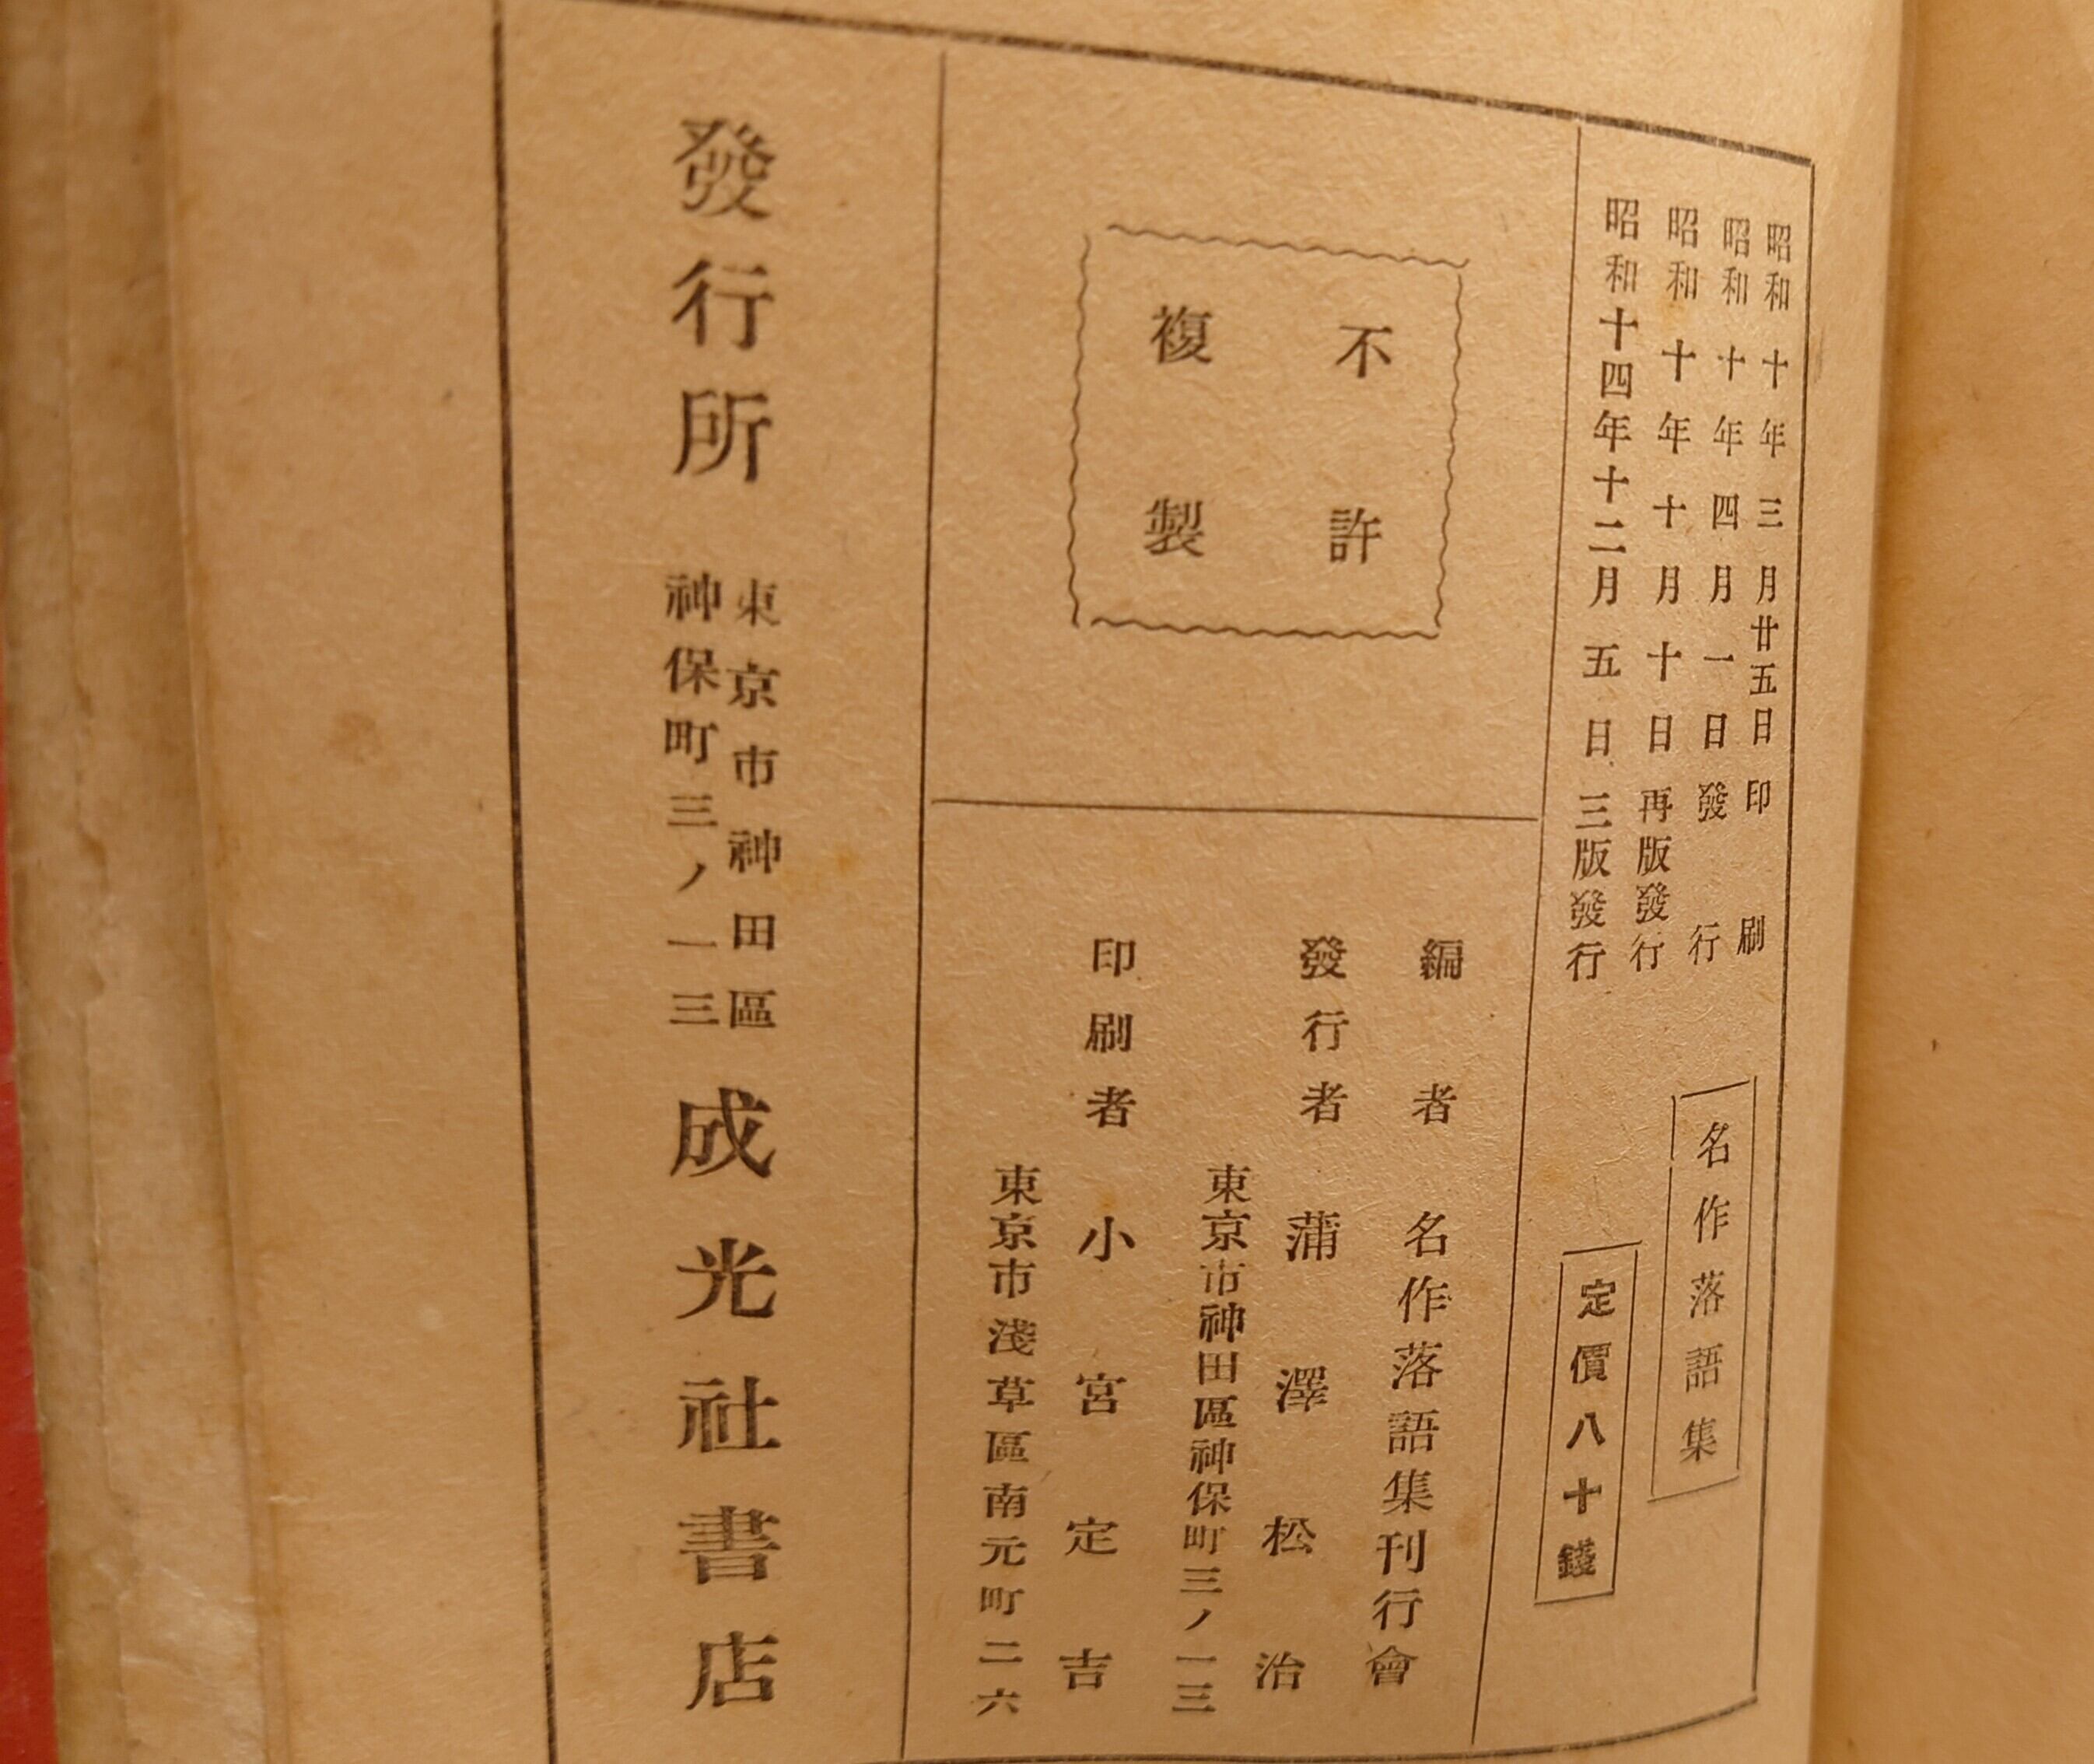 昭和十年三月廿五日印刷
昭和十年四月一日發行
昭和十年十月十日再版發行
昭和十四年十二月五日三版發行
名作落語集
定價八十錢
不許
複製
編者 名作落語集刊行會
發行者 蒲澤松治
東京市神田區神保町三ノ一三
印刷者 小宮定吉
東京市淺草區南元町二六
發行所
東京市神田區
神保町三ノ一三
成光社書店